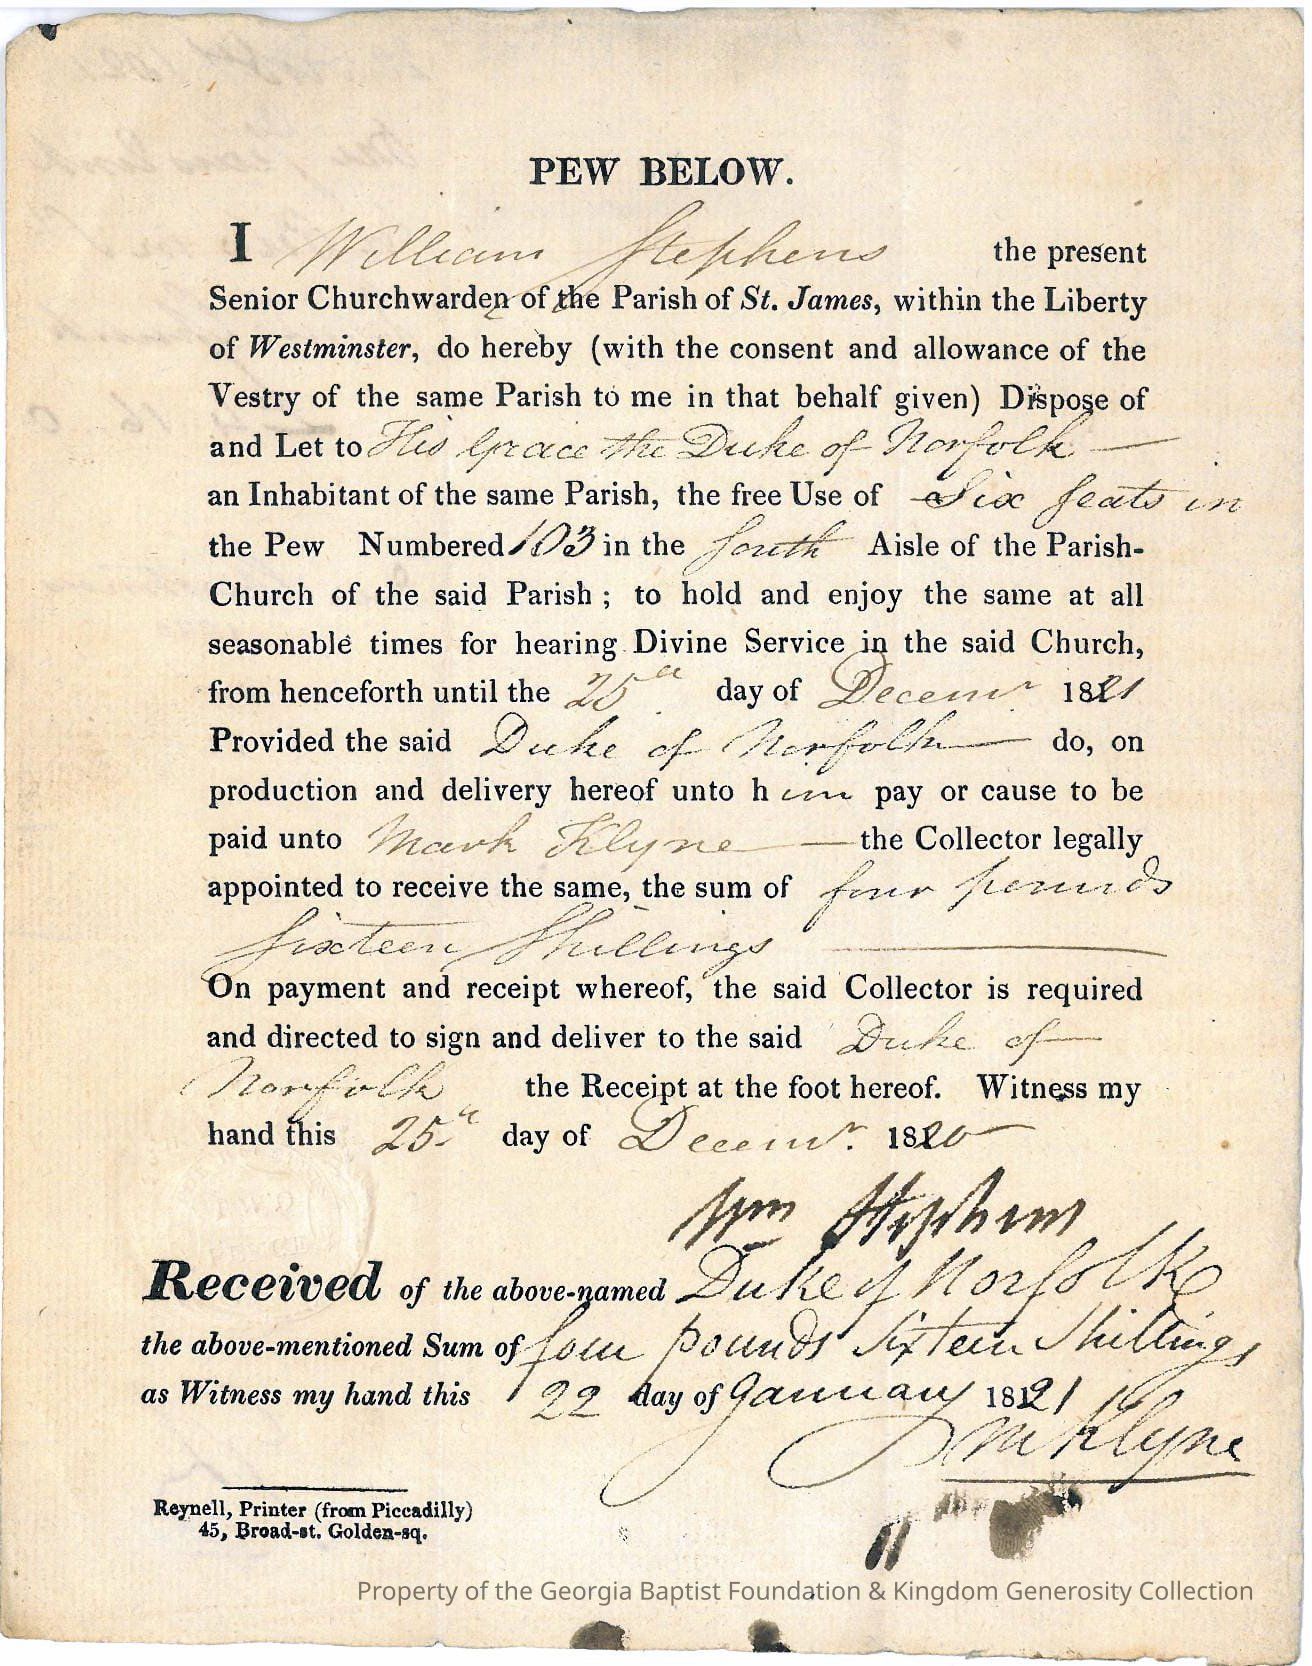 PEW BELOW.
I William Stephens the present
Senior Churchwarden of the Parish of St. James, within the Liberty
of Westminster, do hereby (with the consent and allowance of the
Vestry of the same Parish to me in that behalf given) Dispose of
and Let to His Grace the Duke of Norfolk
an Inhabitant of the same Parish, the free Use of Six Seats in
the Pew Numbered 103 in the South Aisle of the Parish-
Church of the said Parish; to hold and enjoy the same at all
seasonable times for hearing Divine Service in the said Church,
from henceforth until the 25th day of Decemr. 1821
Provided the said Duke of Norfolk do, on
production and delivery hereof unto him pay or cause to be
paid unto Mark Klyne the Collector legally
appointed to receive the same, the sum of four pounds
Sixteen Shillings
On payment and receipt whereof, the said Collector is required
and directed to sign and deliver to the said Duke of
Norfolk the Receipt at the foot hereof. Witness my
hand this 25th day of Decemr. 1820
Wm Stephens
Received of the above-named Duke of Norfolk
the above-mentioned Sum of four pounds Sixteen Shillings
as Witness my hand this 22 day of January 1821
M Klyne
Reynell, Printer (from Piccadilly)
45, Broad-st. Golden-sq.
Property of the Georgia Baptist Foundation & Kingdom Generosity Collection